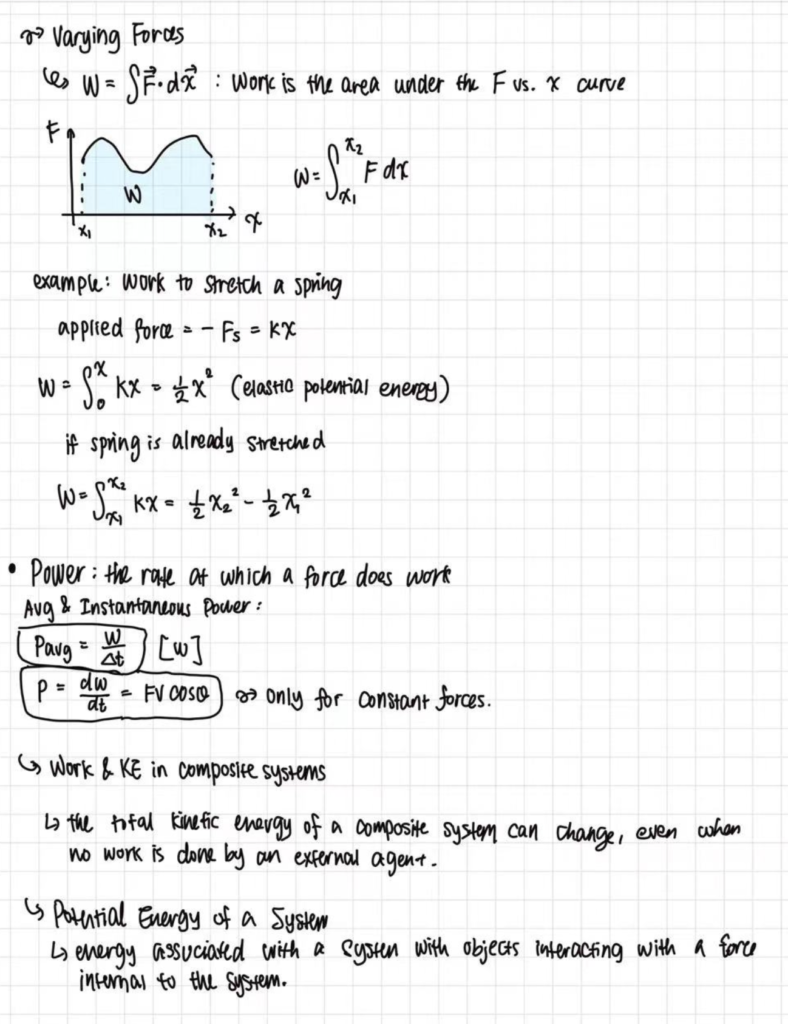 Varying Forces
W = ∫F⃗·dx⃗ : Work is the area under the F vs. x curve
F
W
x₁ x₂ x
W = ∫ₓ₁ˣ² F dx
example: work to stretch a spring
applied force = - Fs = Kx
W = ∫₀ˣ Kx = ½x² (elastic potential energy)
if spring is already stretched
W = ∫ₓ₁ˣ² Kx = ½x₂² - ½x₁²
• Power: the rate at which a force does work
Avg & Instantaneous Power:
Pavg = W/Δt [W]
P = dw/dt = FV cosθ only for constant forces.
Work & KE in composite systems
the total kinetic energy of a composite system can change, even when
no work is done by an external agent.
Potential Energy of a System
energy associated with a system with objects interacting with a force
internal to the system.